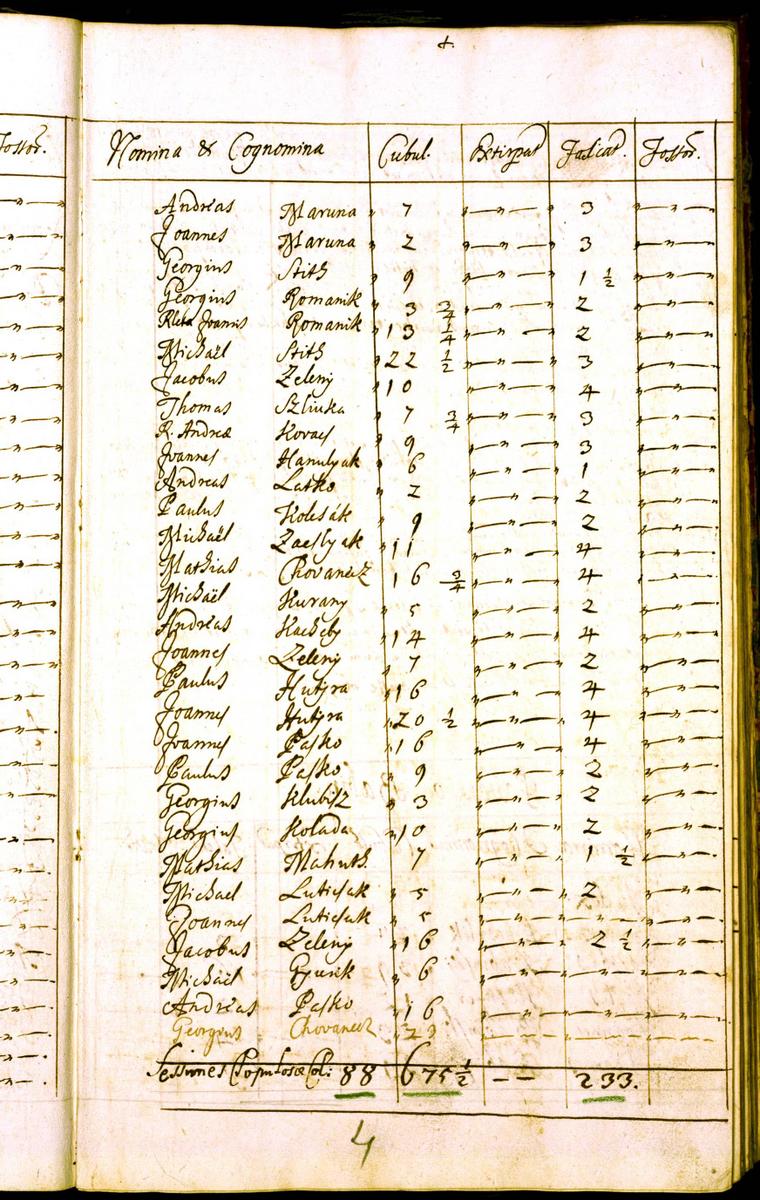 4.
Nomina & Cognomina Cubul. Extirpat Falcat. Fossor.
Fossor.
Andreas Maruna " 7 3
Joannes Maruna " 2 3
Georgius Stith " 9 1 ½
Georgius Romanik " 3 ¾ 2
Relicta Joannis Romanik " 13 ¼ 2
Michaël Stith " 22 ½ 3
Jacobus Zeleny " 10 4
Thomas Szliuka " 7 ¾ 3
R. Andreæ Kovacs " 9 3
Joannes Hanulyak " 6 1
Andreas Latko " 2 2
Paulus Kolesák " 9 2
Michaël " 11 4
Mathias Chovanecz " 16 ¾ 4
Michaël Kurany " 5 2
Andreas " 14 4
Joannes Zeleny " 7 2
Paulus Hutyra " 16 4
Joannes Hutyra " 20 ½ 4
Joannes Pasko " 16 4
Paulus Pasko " 9 2
Georgius Klubisz " 3 2
Georgius Kolada " 10 2
Mathias Mahuth " 7 1 ½
Michael Luticsak " 5 2
Joannes Luticsak " 5
Jacobus Zeleny " 16 2 ½
Michaël " 6
Andreas Pasko " 16
Georgius Chovanecz " 23
Sessiones Populosæ Col: 88 675 ½ — — 233.
4